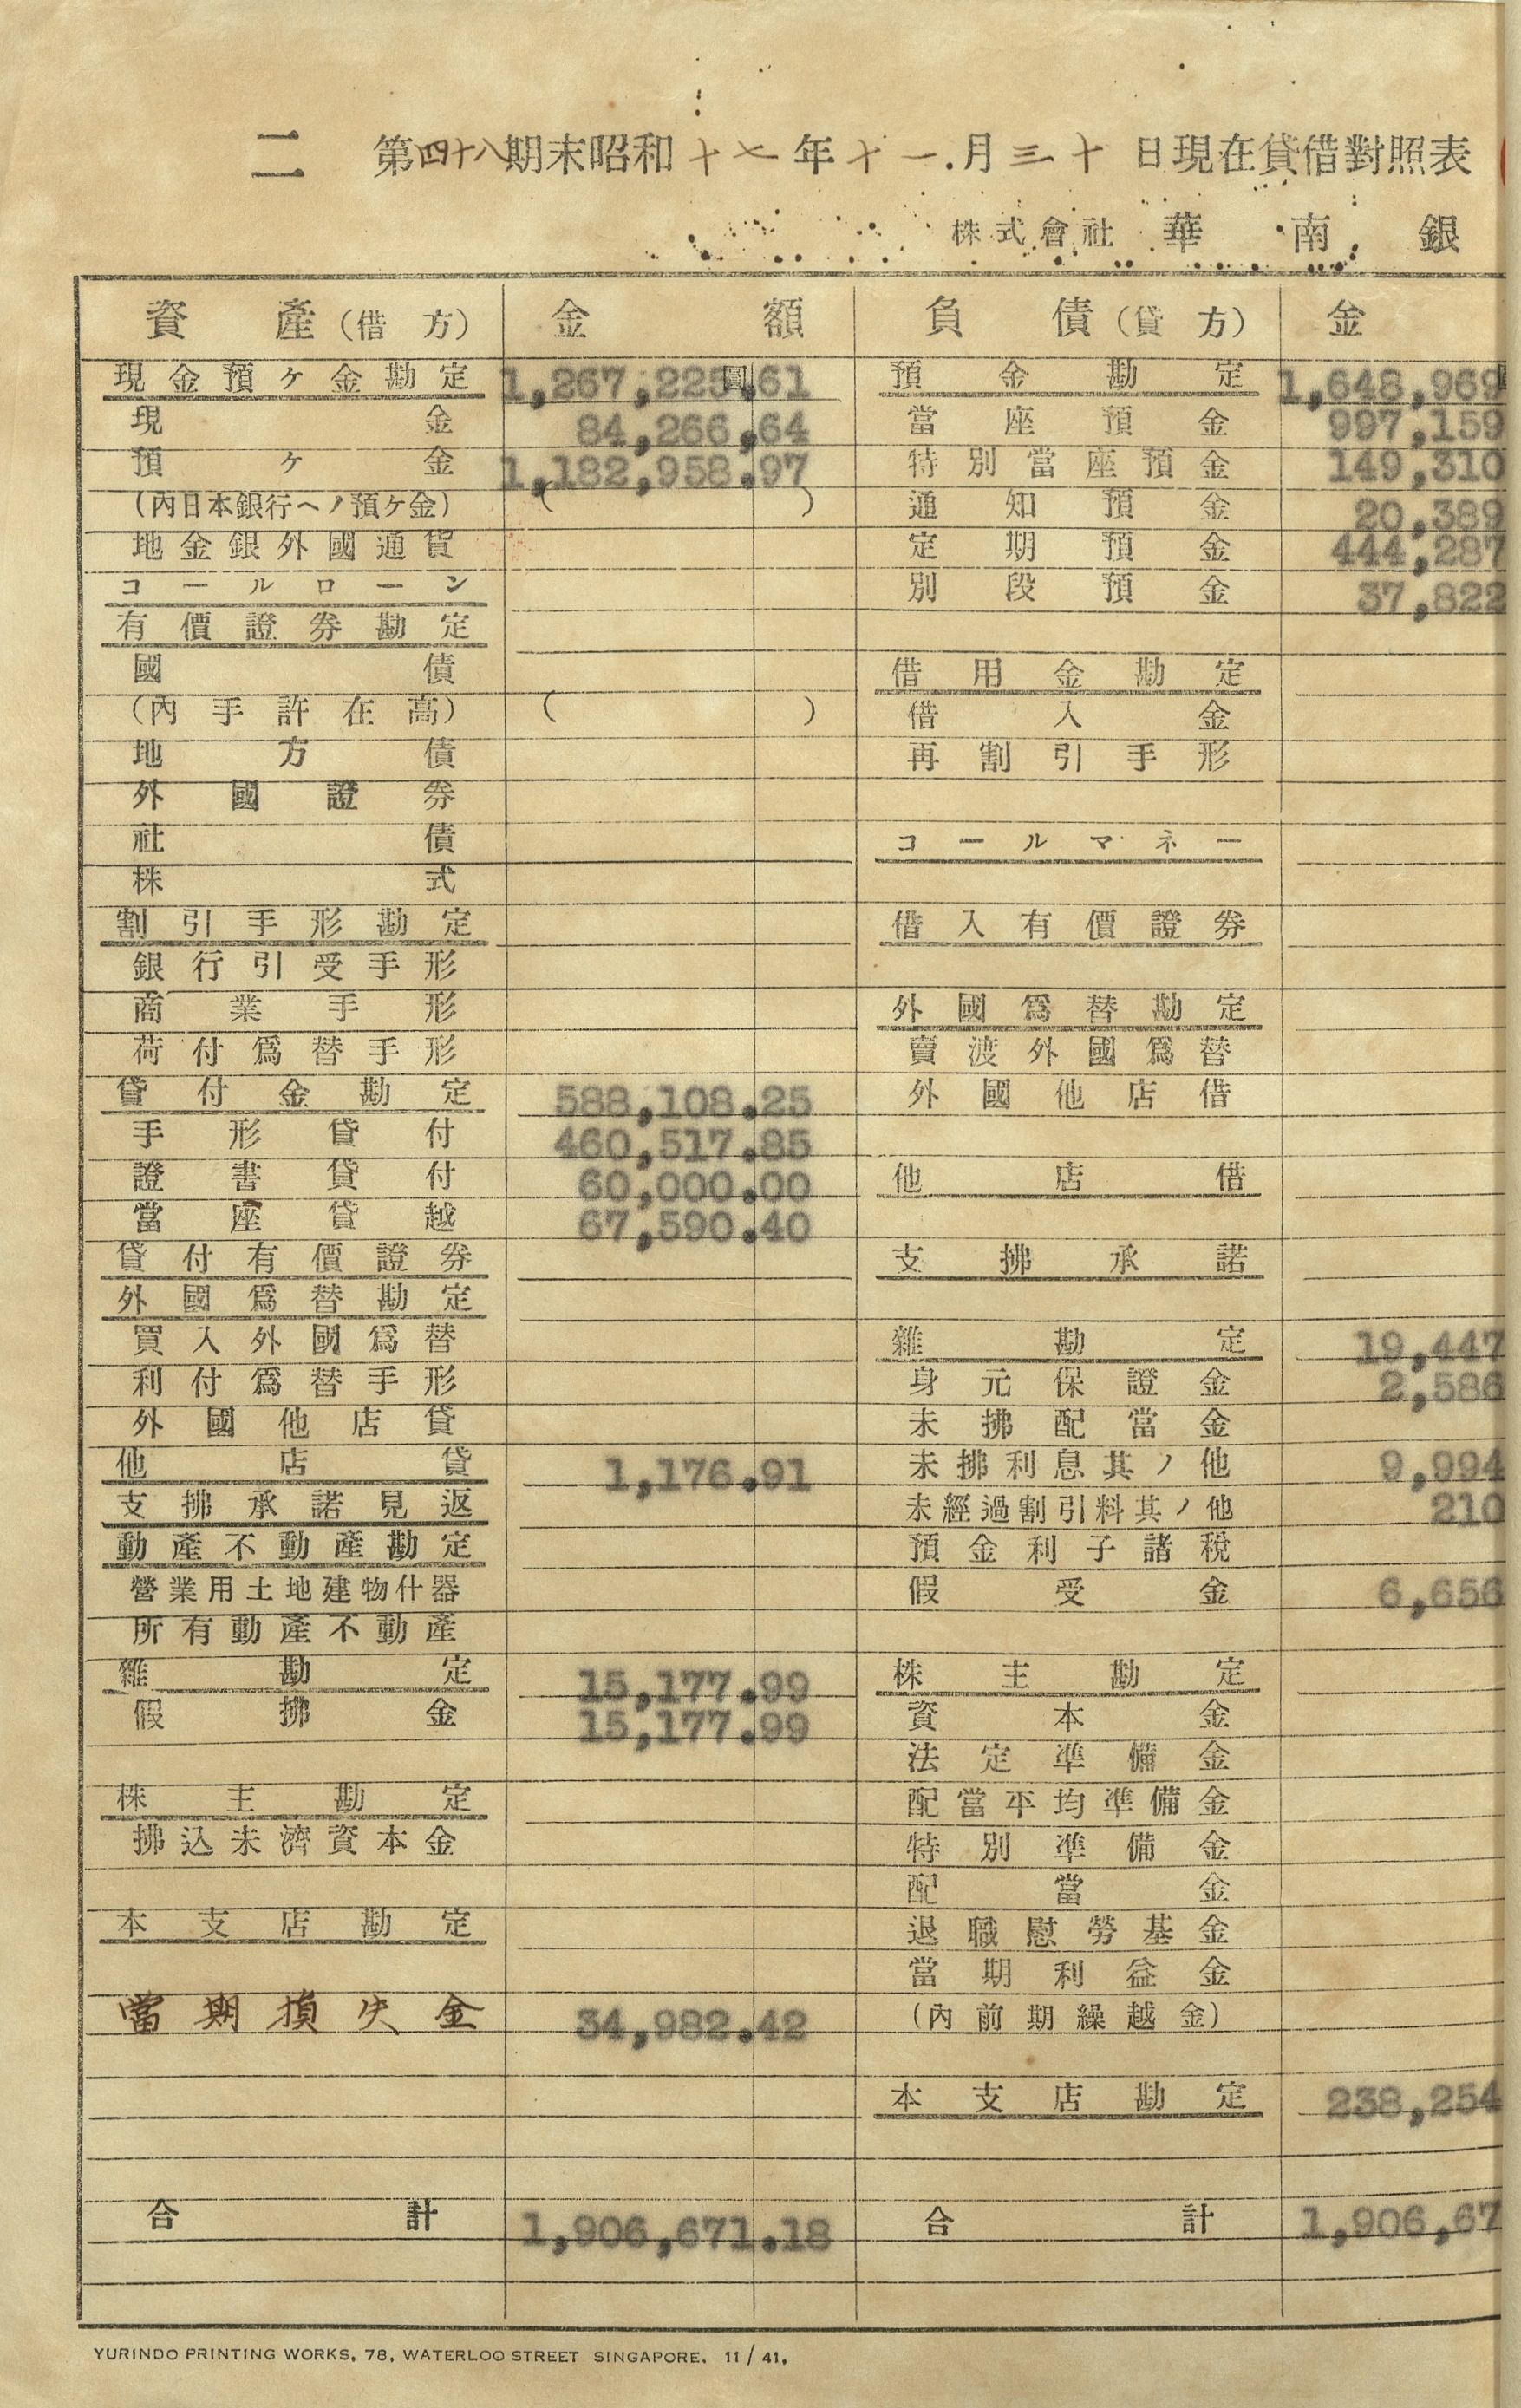 二 第四十八期末昭和十七年十一月三十日現在貸借對照表
株式會社 華南銀
資產(借方) 金額 負債(貸方) 金
現金預ヶ金勘定 1,267,225圓.61 預金勘定 1,648,969
現金 84,266.64 當座預金 997,159
預ヶ金 1,182,958.97 特別當座預金 149,310
(內日本銀行ヘノ預ヶ金) ( ) 通知預金 20,389
地金銀外國通貨 定期預金 444,287
コールローン 別段預金 37,822
有價證券勘定
國債 借用金勘定
(內手許在高) ( ) 借入金
地方債 再割引手形
外國證券
社債 コールマネー
株式
割引手形勘定 借入有價證券
銀行引受手形
商業手形 外國爲替勘定
荷付爲替手形 賣渡外國爲替
貸付金勘定 588,108.25 外國他店借
手形貸付 460,517.85
證書貸付 60,000.00 他店借
當座貸越 67,590.40
貸付有價證券 支拂承諾
外國爲替勘定
買入外國爲替 雜勘定 19,447
利付爲替手形 身元保證金 2,586
外國他店貸 未拂配當金
他店貸 1,176.91 未拂利息其ノ他 9,994
支拂承諾見返 未經過割引料其ノ他 210
動產不動產勘定 預金利子諸稅
營業用土地建物什器 假受金 6,656
所有動產不動產
雜勘定 15,177.99 株主勘定
假拂金 15,177.99 資本金
法定準備金
株主勘定 配當平均準備金
拂込未濟資本金 特別準備金
配當金
本支店勘定 退職慰勞基金
當期利益金
當期損失金 34,982.42 (內前期繰越金)
本支店勘定 238,254
合計 1,906,671.18 合計 1,906,67
YURINDO PRINTING WORKS, 78, WATERLOO STREET SINGAPORE. 11/41.